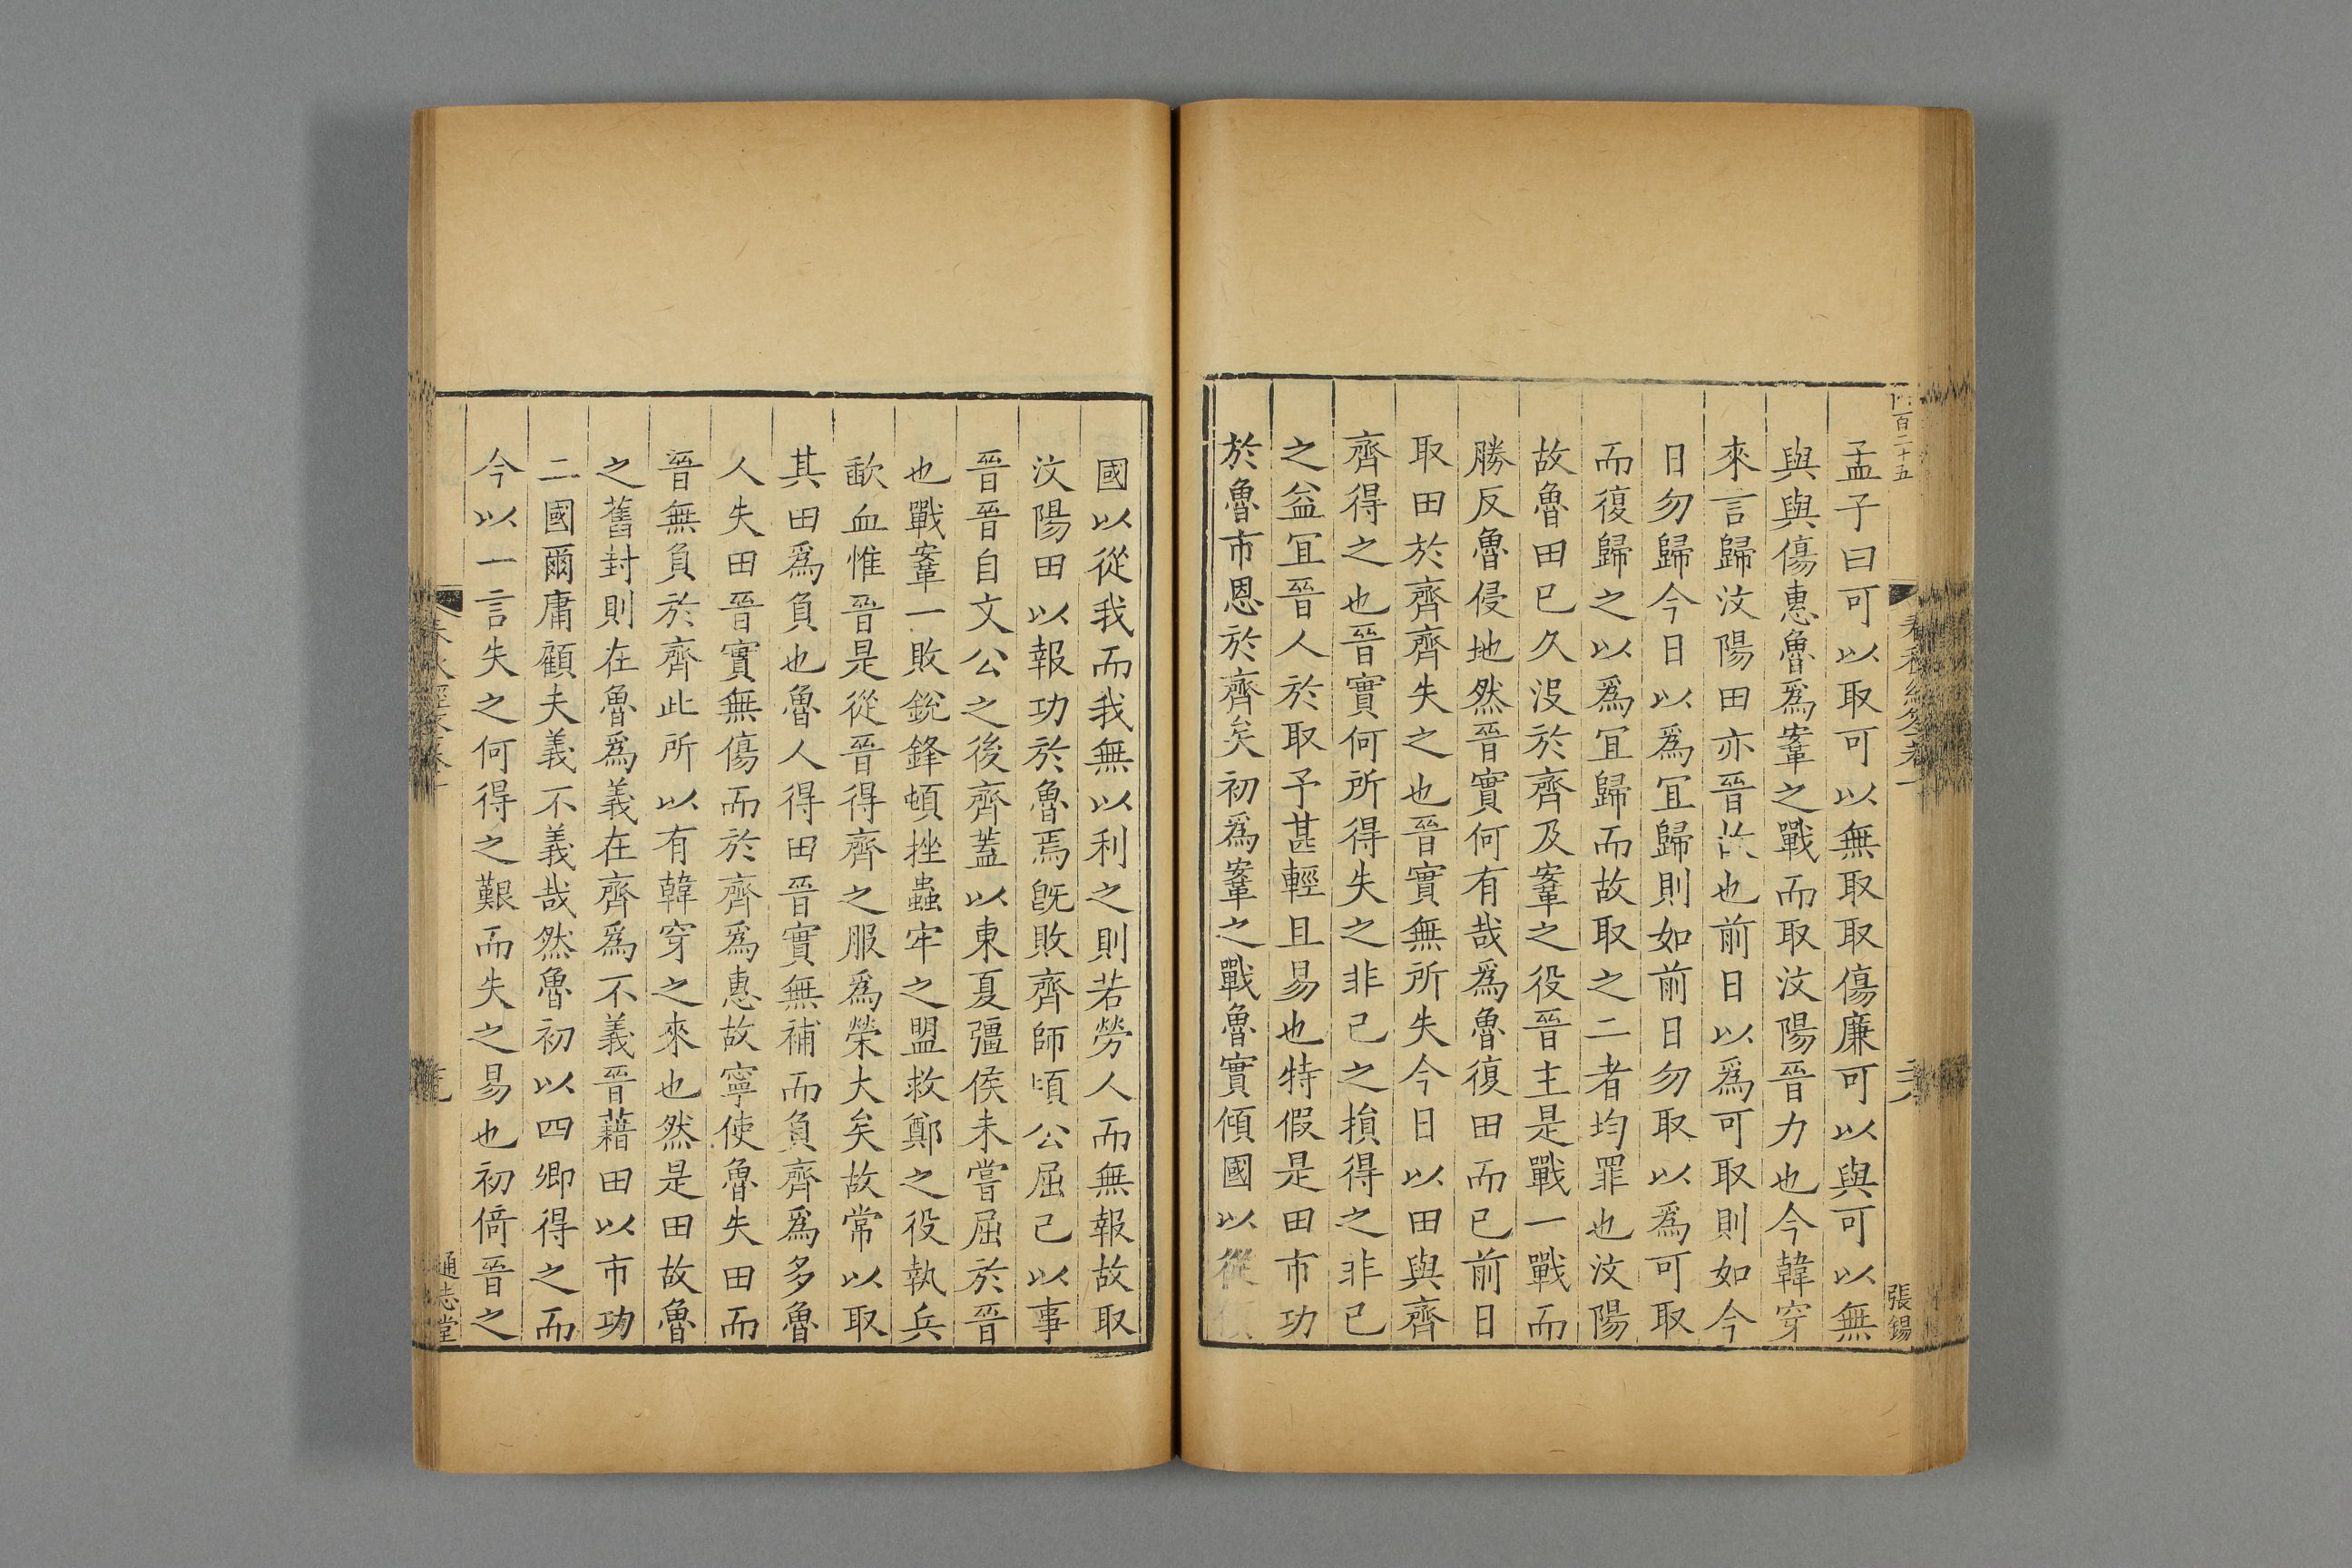 百二十五
孟子曰可以取可以無取取傷廉可以與可以無
與與傷惠魯爲鞌之戰而取汶陽晉力也今韓穿
來言歸汶陽田亦晉故也前日以爲可取則如今
日勿歸今日以爲冝歸則如前日勿取以爲可取
而復歸之以爲冝歸而故取之二者均罪也汶陽
故魯田已久沒於齊及鞌之役晉主是戰一戰而
勝反魯侵地然晉實何有哉爲魯復田而已前日
取田於齊齊失之也晉實無所失今日以田與齊
齊得之也晉實何所得失之非己之損得之非己
之益冝晉人於取予甚輕且易也特假是田市功
於魯市恩於齊矣初爲鞌之戰魯實傾國以從
張錫
國以從我而我無以利之則若勞人而無報故取
汶陽田以報功於魯焉旣敗齊師頃公屈己以事
晉晉自文公之後齊蓋以東夏彊侯未嘗屈於晉
也戰鞌一敗銳鋒頓挫蟲牢之盟救鄭之役執兵
歃血惟晉是從晉得齊之服爲榮大矣故常以取
其田爲負也魯人得田晉實無補而負齊爲多魯
人失田晉實無傷而於齊爲惠故寧使魯失田而
晉無負於齊此所以有韓穿之來也然是田故魯
之舊封則在魯爲義在齊爲不義晉藉田以市功
二國爾庸顧夫義不義哉然魯初以四卿得之而
今以一言失之何得之艱而失之易也初倚晉之
通志堂